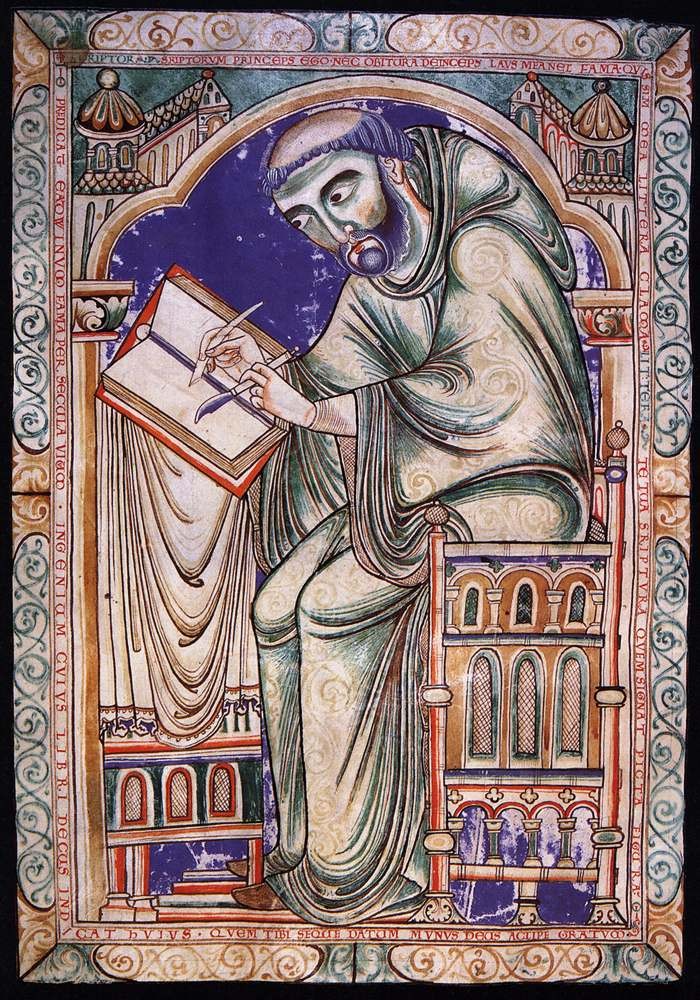 SCRIPTOR SCRIPTORUM PRINCEPS EGO NEC OBITURA DEINCEPS LAUS MEA NEC FAMA. QUIS
SIM MEA LITTERA CLAMA. LITTERA. TE TUA SCRIPTURA QUEM SIGNAT PICTA FIGURA
PREDICAT EADWINUM FAMA PER SECULA VIVUM. INGENIUM CUIUS LIBRI DECUS IND
ICAT HUIUS. QUEM TIBI SEQUE DATUM MUNUS DEUS ACCIPE GRATUM